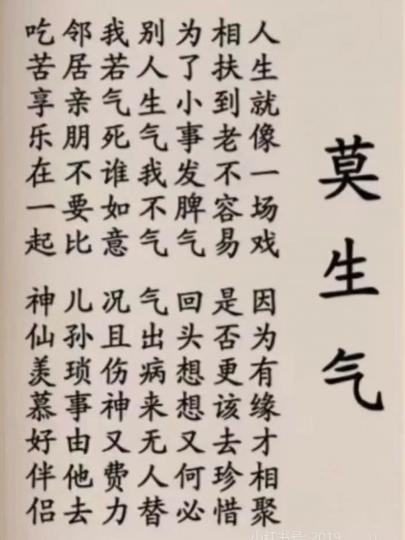 莫生气
人生就像一场戏
因为有缘才相聚
相扶到老不容易
是否更该去珍惜
为了小事发脾气
回头想想又何必
别人生气我不气
气出病来无人替
我若气死谁如意
况且伤神又费力
邻居亲朋不要比
儿孙琐事由他去
吃苦享乐在一起
神仙羡慕好伴侣